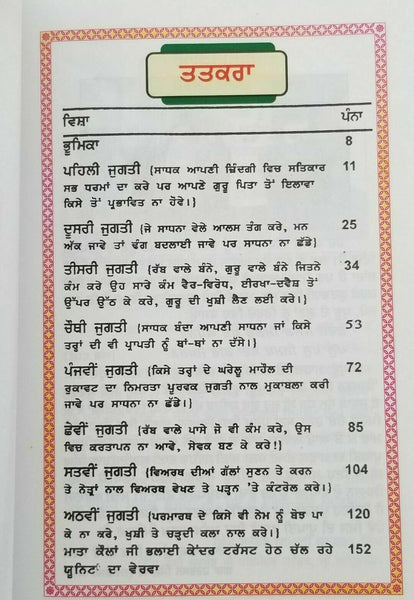 ਤਤਕਰਾ
ਵਿਸ਼ਾ ਪੰਨਾ
ਭੂਮਿਕਾ 8
ਪਹਿਲੀ ਜੁਗਤੀ {ਸਾਧਕ ਆਪਣੀ ਜ਼ਿੰਦਗੀ ਵਿਚ ਸਤਿਕਾਰ 11
ਸਭ ਧਰਮਾਂ ਦਾ ਕਰੇ ਪਰ ਆਪਣੇ ਗੁਰੂ ਪਿਤਾ ਤੋਂ ਇਲਾਵਾ
ਕਿਸੇ ਤੋਂ ਪ੍ਰਭਾਵਿਤ ਨਾ ਹੋਵੇ।}
ਦੂਸਰੀ ਜੁਗਤੀ {ਜੇ ਸਾਧਨਾ ਵੇਲੇ ਆਲਸ ਤੰਗ ਕਰੇ, ਮਨ 25
ਅੱਕ ਜਾਵੇ ਤਾਂ ਢੰਗ ਬਦਲਾਈ ਜਾਵੇ ਪਰ ਸਾਧਨਾ ਨਾ ਛੱਡੇ}
ਤੀਸਰੀ ਜੁਗਤੀ {ਰੱਬ ਵਾਲੇ ਬੰਨੇ, ਗੁਰੂ ਵਾਲੇ ਬੰਨੇ ਜਿਤਨੇ 34
ਕੰਮ ਕਰੇ ਉਹ ਸਾਰੇ ਕੰਮ ਵੈਰ-ਵਿਰੋਧ, ਈਰਖਾ-ਦਵੈਸ਼ ਤੋਂ
ਉੱਪਰ ਉੱਠ ਕੇ ਕਰੇ, ਗੁਰੂ ਦੀ ਖੁਸ਼ੀ ਲੈਣ ਲਈ ਕਰੇ।}
ਚੌਥੀ ਜੁਗਤੀ {ਸਾਧਕ ਬੰਦਾ ਆਪਣੀ ਸਾਧਨਾ ਜਾਂ ਕਿਸੇ 53
ਤਰ੍ਹਾਂ ਦੀ ਵੀ ਪ੍ਰਾਪਤੀ ਨੂੰ ਥਾਂ-ਥਾਂ ਨਾ ਦੱਸੇ।}
ਪੰਜਵੀਂ ਜੁਗਤੀ {ਕਿਸੇ ਤਰ੍ਹਾਂ ਦੇ ਘਰੇਲੂ ਮਾਹੌਲ ਦੀ 72
ਰੁਕਾਵਟ ਦਾ ਨਿਮਰਤਾ ਪੂਰਵਕ ਜੁਗਤੀ ਨਾਲ ਮੁਕਾਬਲਾ ਕਰੀ
ਜਾਵੇ ਪਰ ਸਾਧਨਾ ਨਾ ਛੱਡੇ।}
ਛੇਵੀਂ ਜੁਗਤੀ {ਰੱਬ ਵਾਲੇ ਪਾਸੇ ਜੋ ਵੀ ਕੰਮ ਕਰੇ, ਉਸ 85
ਵਿਚ ਕਰਤਾਪਨ ਨਾ ਆਵੇ, ਸੇਵਕ ਬਣ ਕੇ ਕਰੇ!}
ਸਤਵੀਂ ਜੁਗਤੀ {ਵਿਅਰਥ ਦੀਆਂ ਗੱਲਾਂ ਸੁਣਨ ਤੇ ਕਰਨ 104
ਤੇ ਨੇਤ੍ਰਾਂ ਨਾਲ ਵਿਅਰਥ ਵੇਖਣ ਤੇ ਪੜ੍ਹਨ 'ਤੇ ਕੰਟਰੋਲ ਕਰੇ।}
ਅਠਵੀਂ ਜੁਗਤੀ {ਪਰਮਾਰਥ ਦੇ ਕਿਸੇ ਵੀ ਨੇਮ ਨੂੰ ਬੋਝ ਪਾ 120
ਕੇ ਨਾ ਕਰੇ, ਖੁਸ਼ੀ ਤੇ ਚੜ੍ਹਦੀ ਕਲਾ ਨਾਲ ਕਰੇ।}
ਮਾਤਾ ਕੌਲਾਂ ਜੀ ਭਲਾਈ ਕੇਂਦਰ ਟਰੱਸਟ ਹੇਠ ਚੱਲ ਰਹੇ 152
ਯੂਨਿਟਾਂ ਦਾ ਵੇਰਵਾ